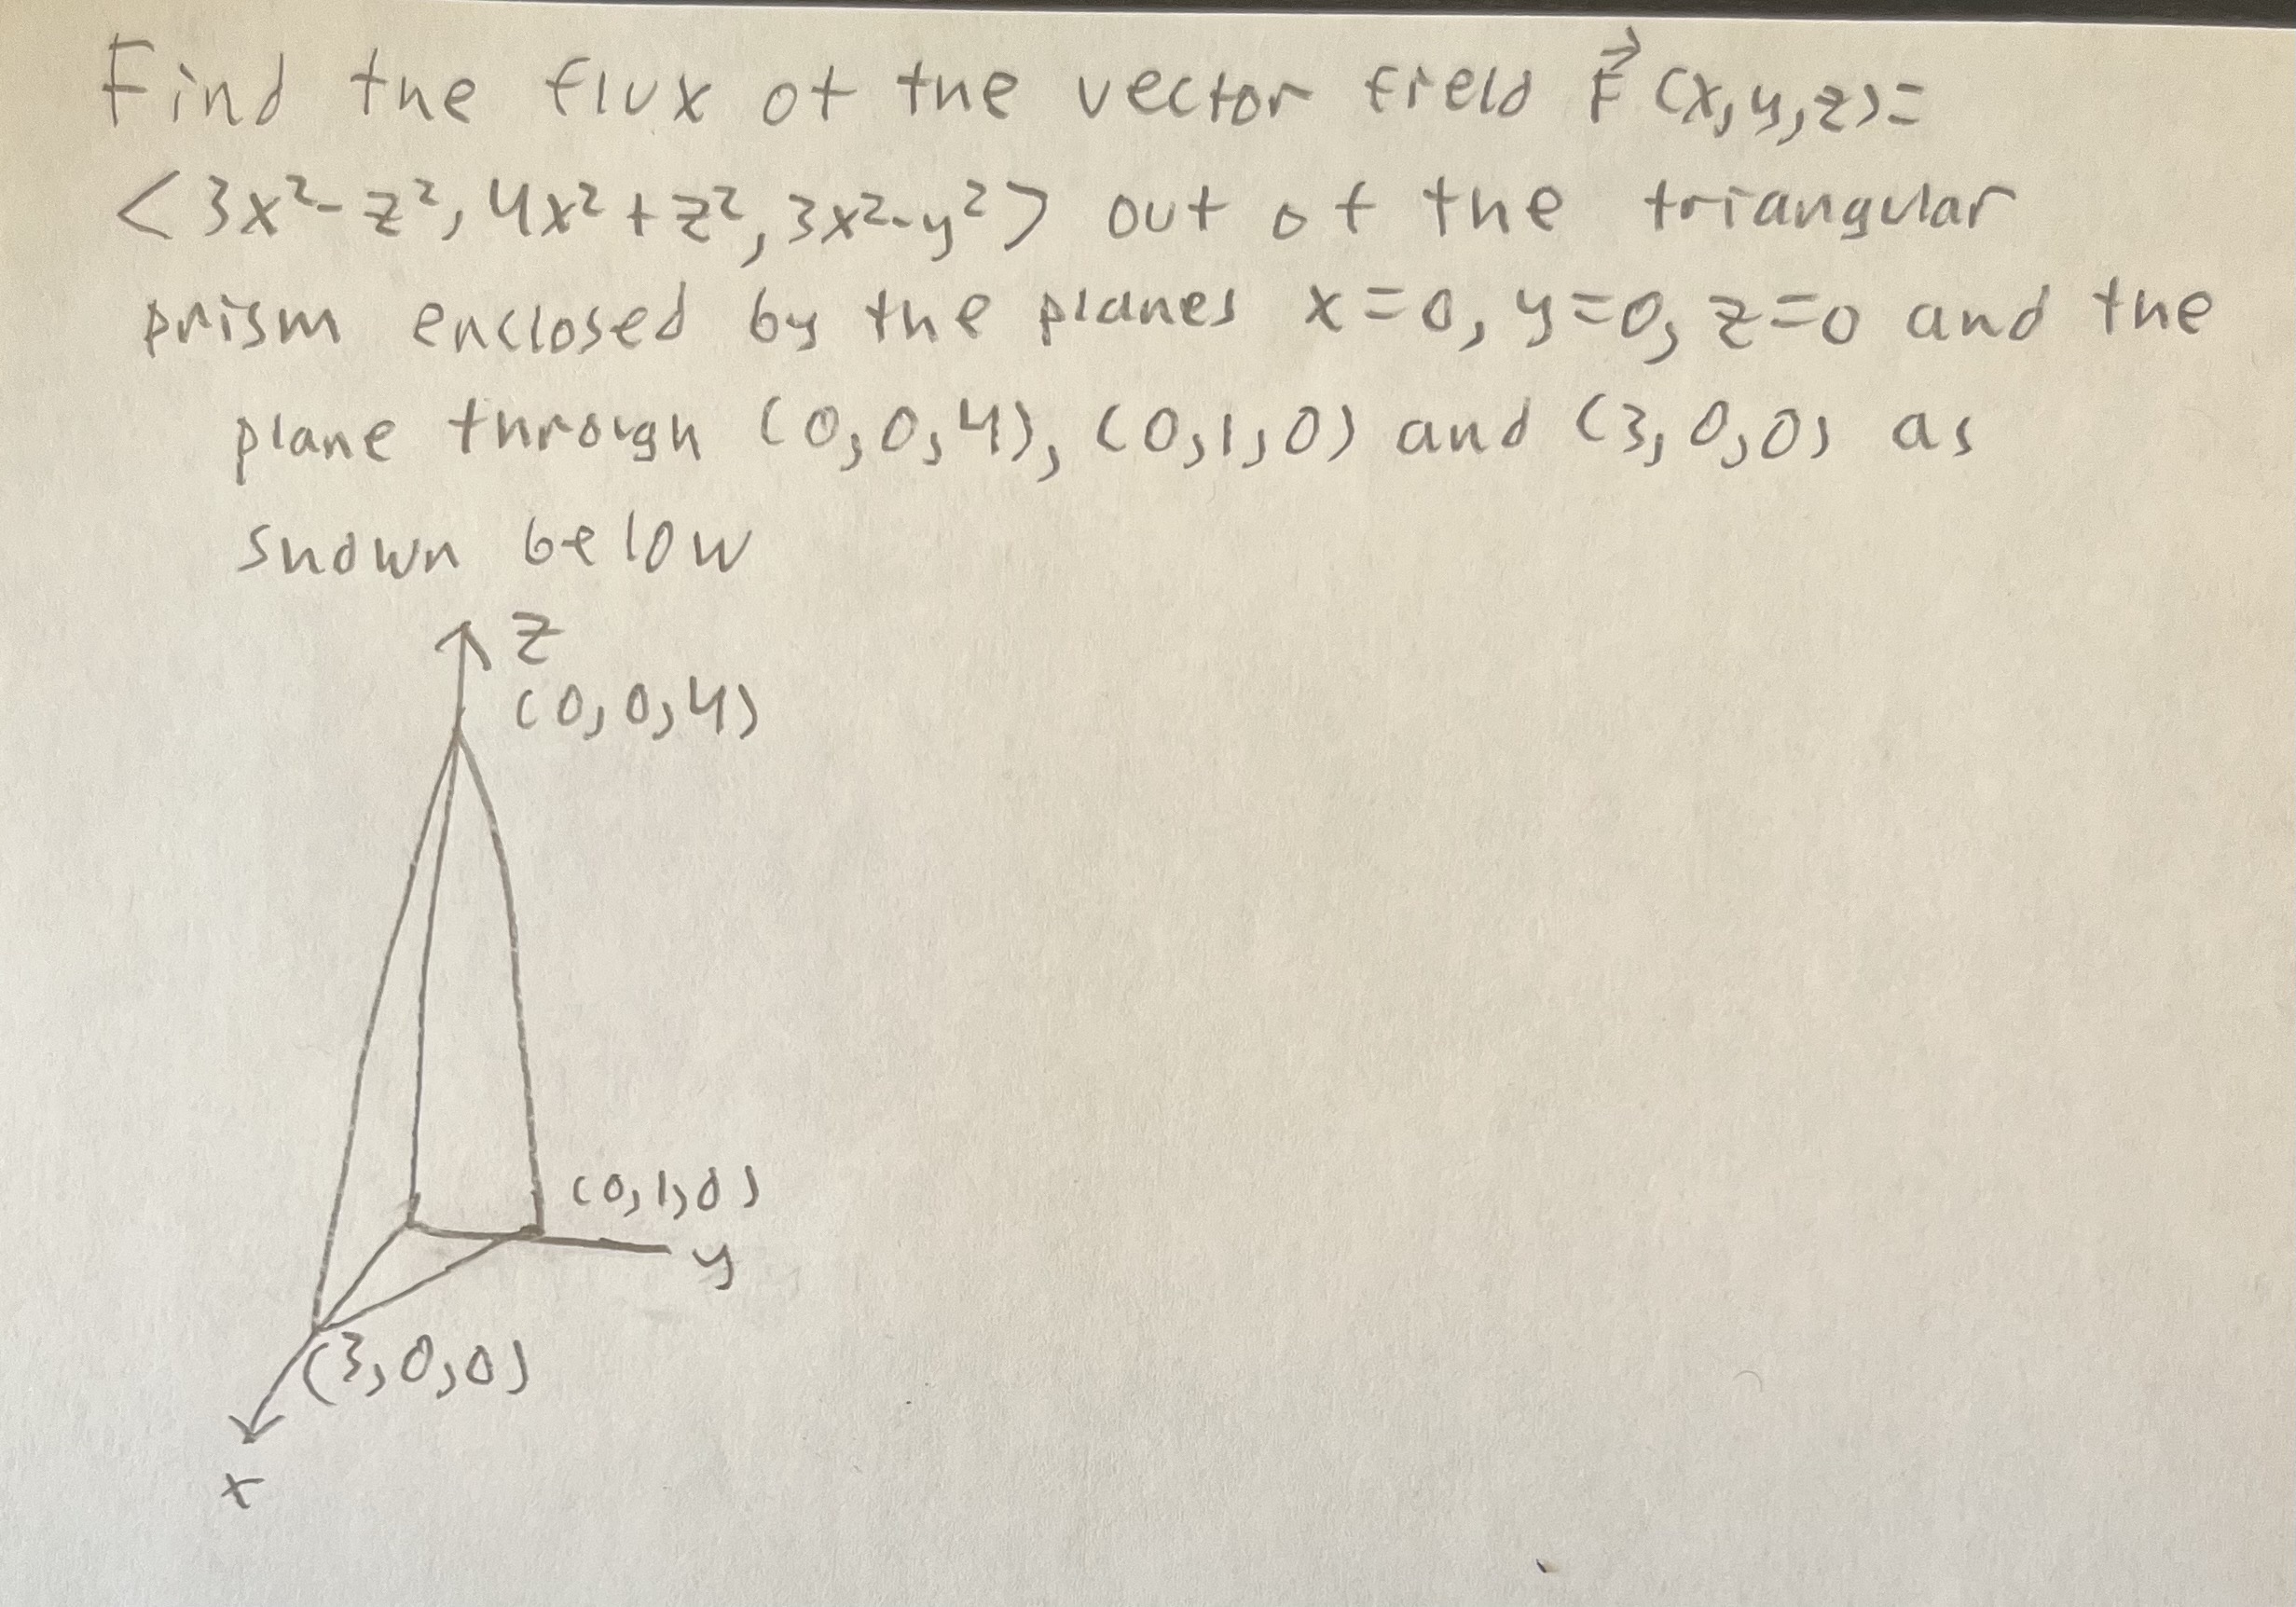 Find the flux of the vector field F⃗(x,y,z)=
<3x²-z², 4x²+z², 3x²-y²> out of the triangular
prism enclosed by the planes x=0, y=0, z=0 and the
plane through (0,0,4), (0,1,0) and (3,0,0) as
shown below
z
(0,0,4)
(0,1,0)
y
(3,0,0)
x